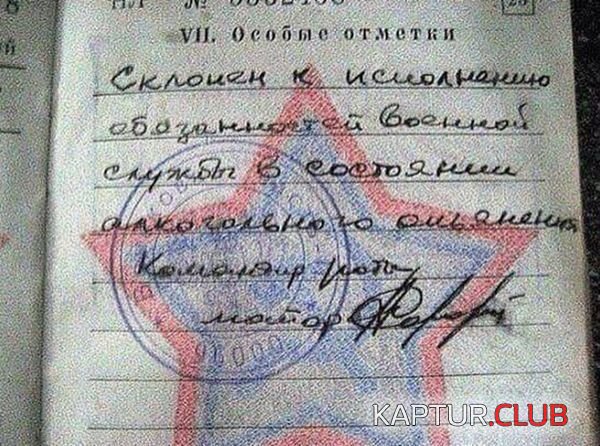 VII. Особые отметки
Склонен к исполнению
обязанностей военной
службы в состоянии
алкогольного опьянения
Командир роты
майор
KAPTUR.CLUB